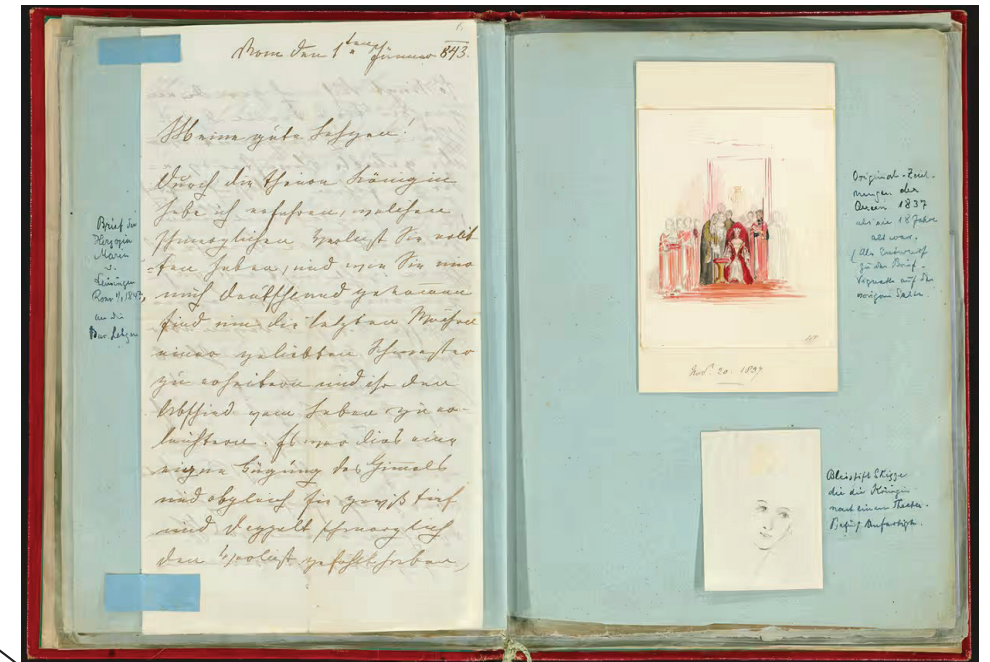 Rom den 1ten Jänner 843.
Meine gute Lehzen!
Durch die theure Königin
habe ich erfahren, welchen
schmerzlichen Verlust Sie erlit-
ten haben, und wie Sie nur
nach Deutschland gekommen
sind um die letzten Wochen
einer geliebten Schwester
zu erheitern und ihr den
Abschied vom Leben zu er-
leichtern. Es war dies eine
eigene Fügung des Himmels
und obgleich Sie gewiß tief
und doppelt schmerzlich
den Verlust gefühlt haben,
Brief der
Herzogin
Marie
v.
Leiningen
Rom 1/1 1843,
an die
Bar. Lehzen
Original-Zeich-
nungen der
Queen 1837
als sie 18 Jahre
alt war.
(Als Entwurf
zu der Brief-
Vignette auf der
vorigen Seite.
Novr. 20. 1837
Bleistift Skizze
die die Königin
nach einem Theater-
Besuch anfertigte.